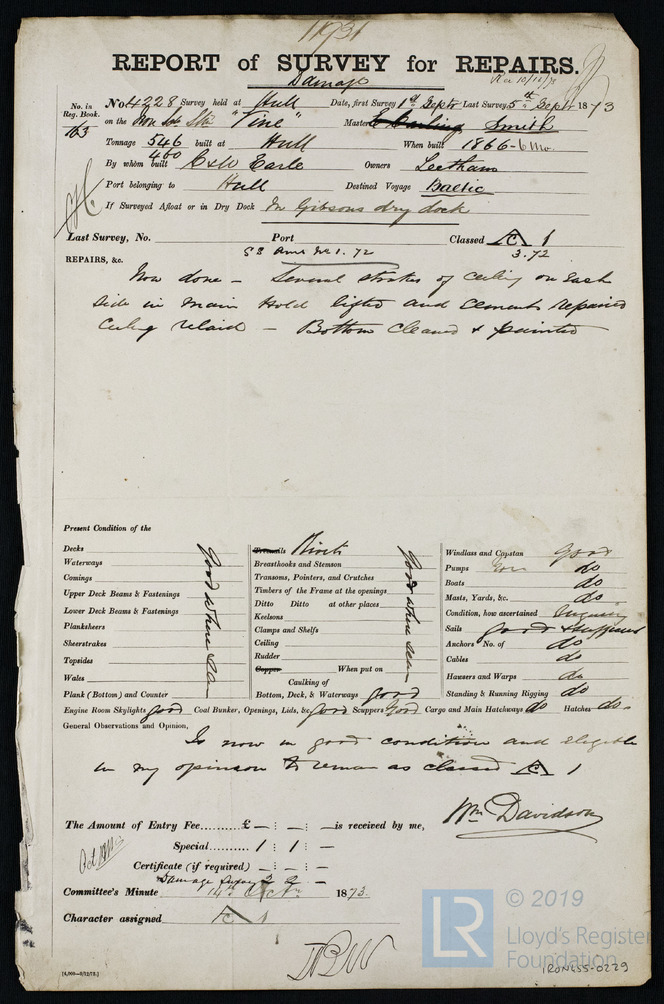 1931
REPORT of SURVEY for REPAIRS.
Damage
Rec 10/10/73
No. in Reg. Book. 163
No 4228 Survey held at Hull Date, first Survey 1st Septr Last Survey 5th Septr 1873
on the Iron Scr Str "Tine" Master Smith
Tonnage 546 built at Hull When built 1866-6mo.
400
By whom built C & W Earle Owners Leetham
Port belonging to Hull Destined Voyage Baltic
If Surveyed Afloat or in Dry Dock In Gibsons dry dock
Last Survey, No. Port Classed A 1
3.72
REPAIRS, &c.
Now done - Several strakes of ceiling on each
side in main Hold lifted and cement repaired
Ceiling relaid - Bottom cleaned & painted
Present Condition of the
Decks
Waterways
Comings
Upper Deck Beams & Fastenings
Lower Deck Beams & Fastenings
Planksheers
Sheerstrakes
Topsides
Wales
Plank (Bottom) and Counter
Good where seen
Treenails Rivets
Breasthooks and Stemson
Transoms, Pointers, and Crutches
Timbers of the Frame at the openings
Ditto Ditto at other places
Keelsons
Clamps and Shelfs
Ceiling
Rudder
Copper When put on
Caulking of
Bottom, Deck, & Waterways good
Good where seen
Windlass and Capstan good
Pumps Iron do
Boats do
Masts, Yards, &c. do
Condition, how ascertained Enquiry
Sails good & sufficient
Anchors No. of do
Cables do
Hawsers and Warps do
Standing & Running Rigging do
Engine Room Skylights good Coal Bunker, Openings, Lids, &c. good Scuppers Good Cargo and Main Hatchways do Hatches do
General Observations and Opinion,
Is now in good condition and eligible
in my opinion to remain as classed A 1
Wm Davidson
The Amount of Entry Fee.......... £ — : — : — is received by me,
Special .......... 1 : 1 : —
Certificate (if required) — : — : —
Damage Survey 2 2 —
Committee's Minute 14th Octr 1873.
Character assigned A 1
[4,000—9/12/72.]
LR
© 2019
Lloyd's Register
Foundation
IRON455-0229